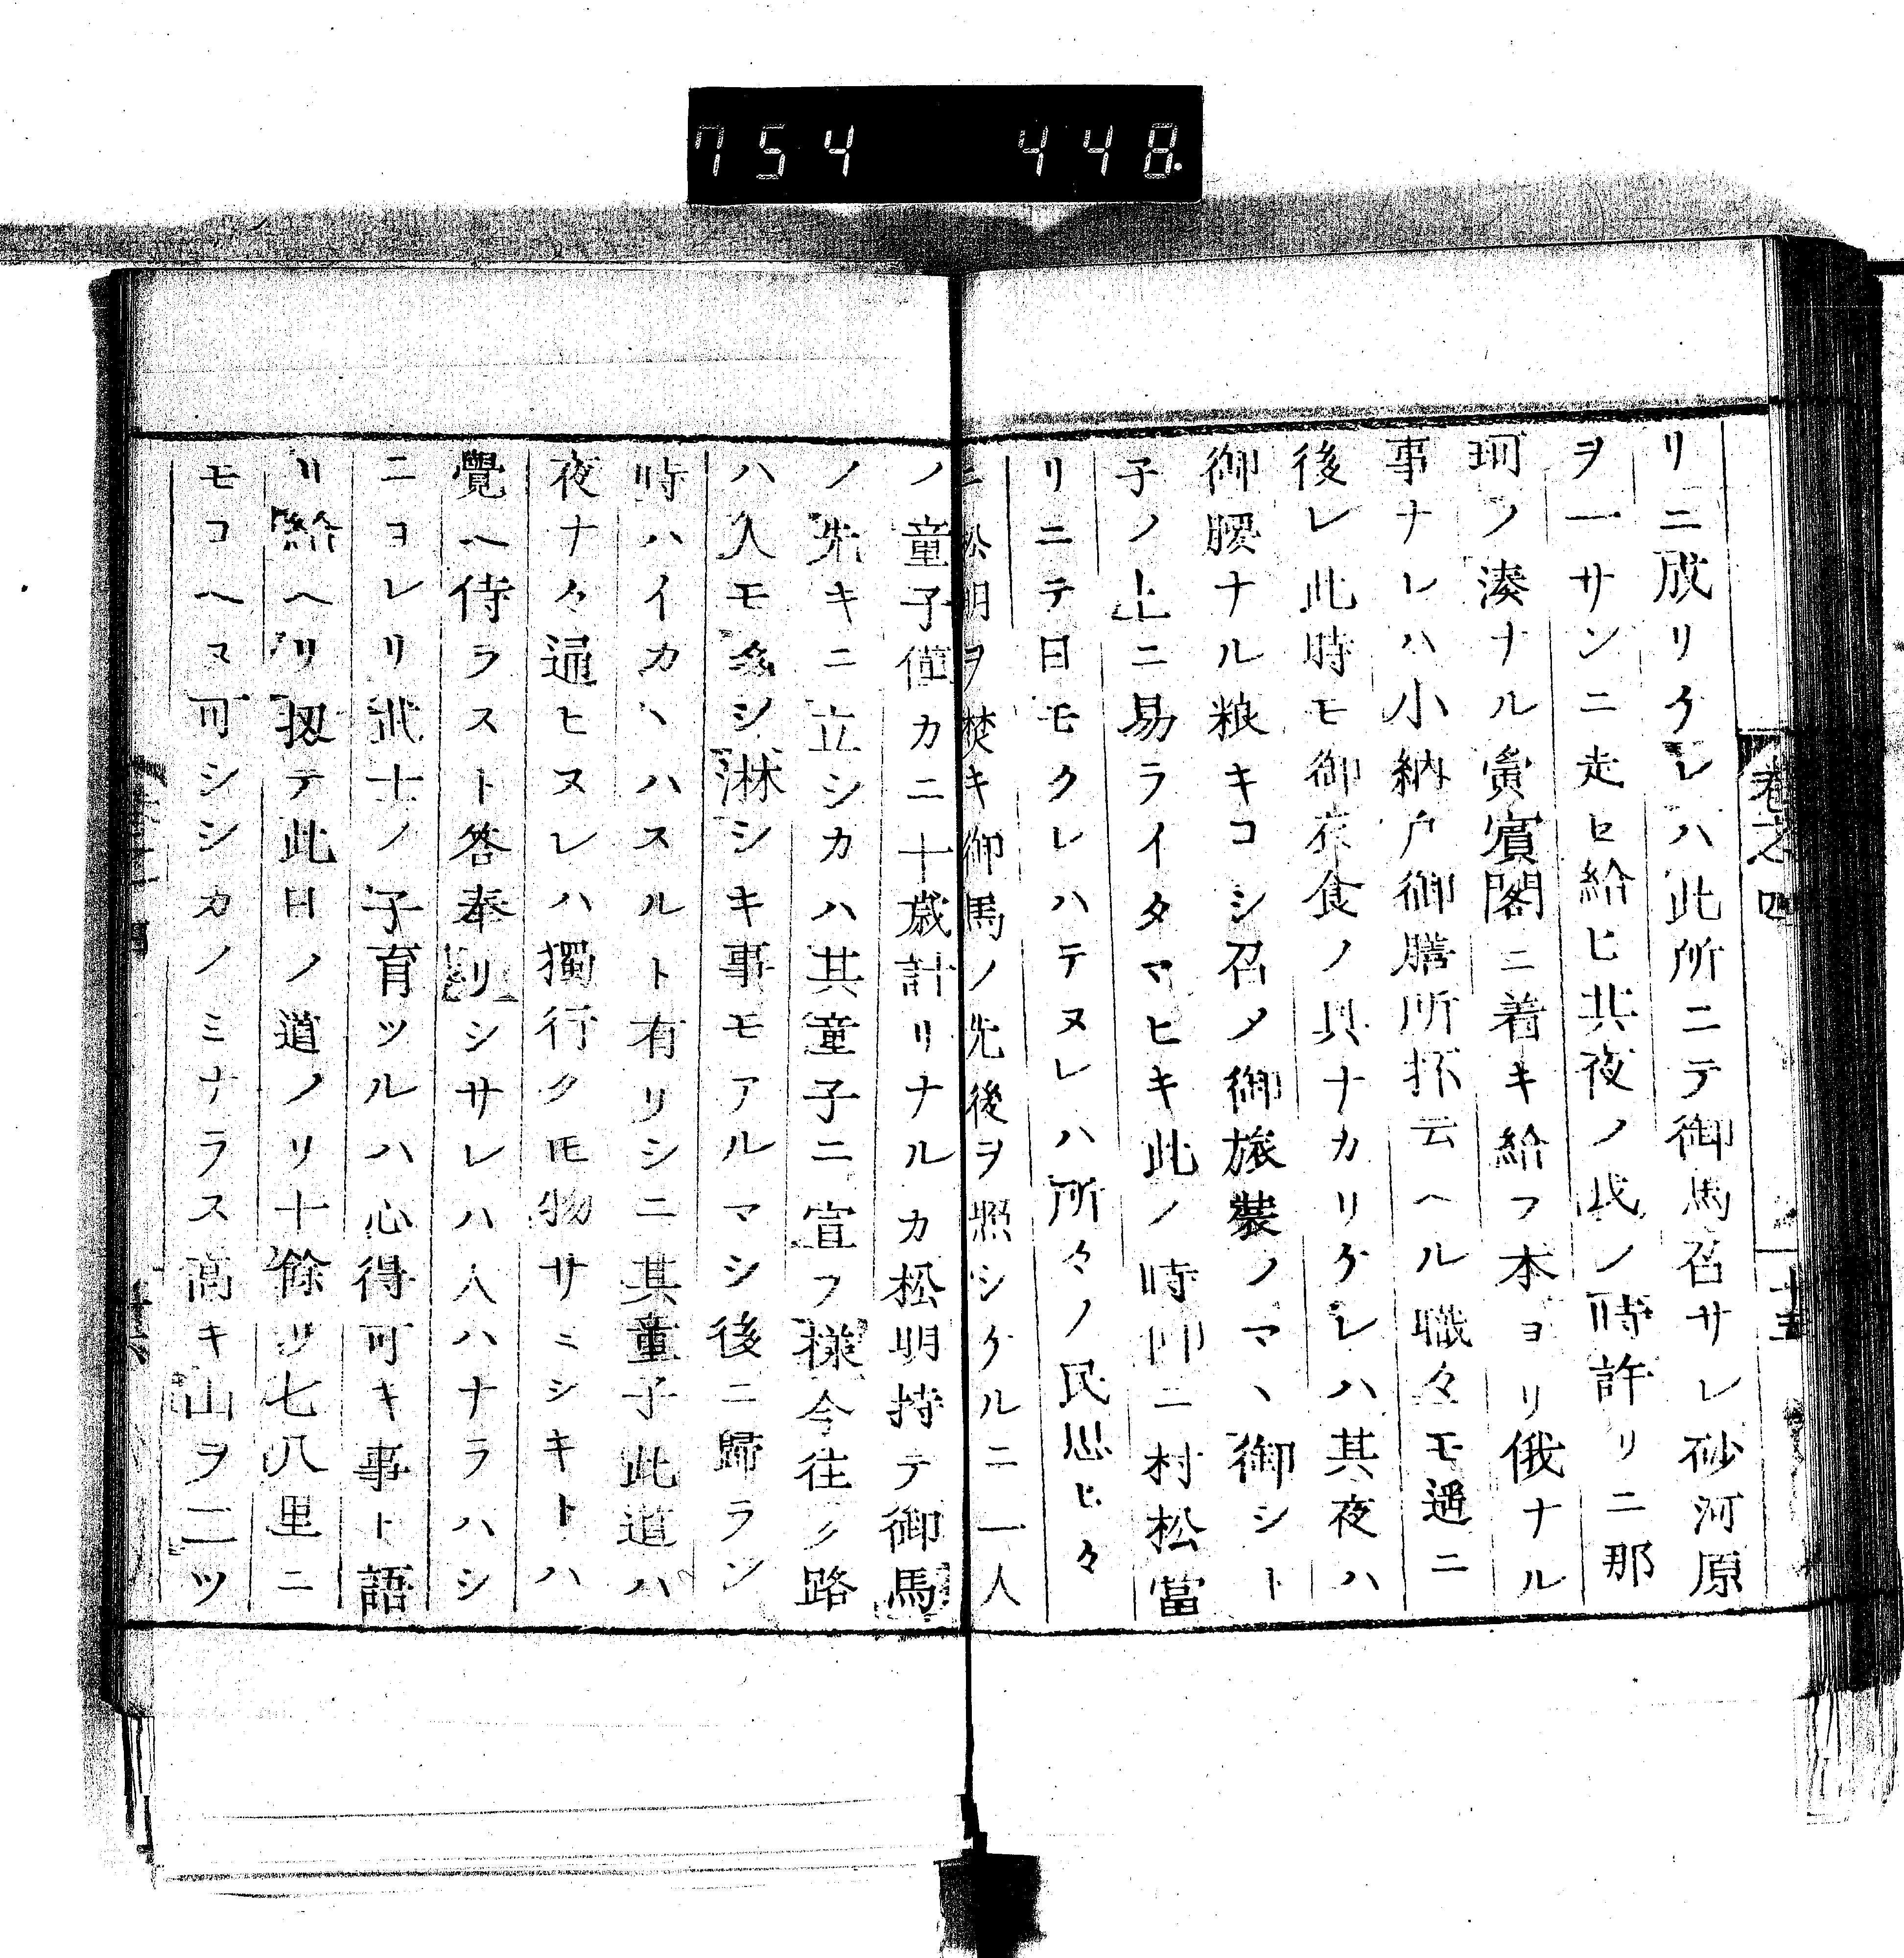 754 448.
卷之四 十五
リニ成リケレハ此所ニテ御馬召サレ砂河原
ヲ一サンニ走セ給ヒ其夜ノ戌ノ時許リニ那
珂ノ湊ナル賓閣ニ着キ給フ本ヨリ俄ナル
事ナレハ小納戸御膳所抔云ヘル職々モ遥ニ
後レ此時モ御衣食ノ具ナカリケレハ其夜ハ
御腰ナル粮キコシ召メ御旅裝ノマヽ御シト
子ノ上ニ易ライタマヒキ此ノ時即ニ村松當
リニテ日モクレハテヌレハ所々ノ民思ヒ々
ニ松明ヲ焚キ御馬ノ先後ヲ照シケルニ一人
ノ童子僅カニ十歲計リナルカ松明持テ御馬
ノ先キニ立シカハ其童子ニ宣フ樣今往ク路
ハ人モ多シ淋シキ事モアルマシ後ニ歸ラン
時ハイカヽハスルト有リシニ其童子此道ハ
夜ナ々通ヒヌレハ獨行クモ物サミシキトハ
覺ヘ侍ラスト答奉リシサレハ人ハナラハシ
ニヨレリ武士ノ子育ツルハ心得可キ事ト語
リ給ヘリ扨テ此日ノ道ノリ十餘リ七八里ニ
モコヘヌ可シシカノミナラス高キ山ヲ二ツ